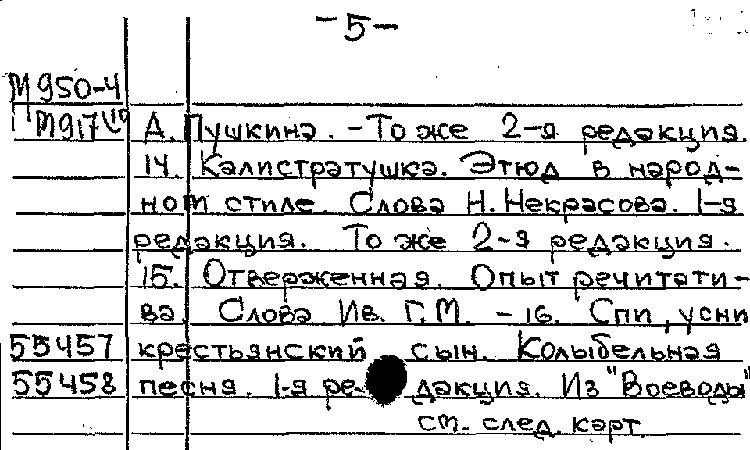 -5-
М950-4
М917 А. Пушкина. - То же 2-я редакция.
14. Калистратушка. Этюд в народ-
ном стиле. Слова Н. Некрасова. 1-я
редакция. То же 2-я редакция.
15. Отверженная. Опыт речитати-
ва. Слова Ив. Г.М. - 16. Спи, усни
55457 крестьянский сын. Колыбельная
55458 песня. 1-я ре- дакция. Из "Воеводы"
см. след. карт.